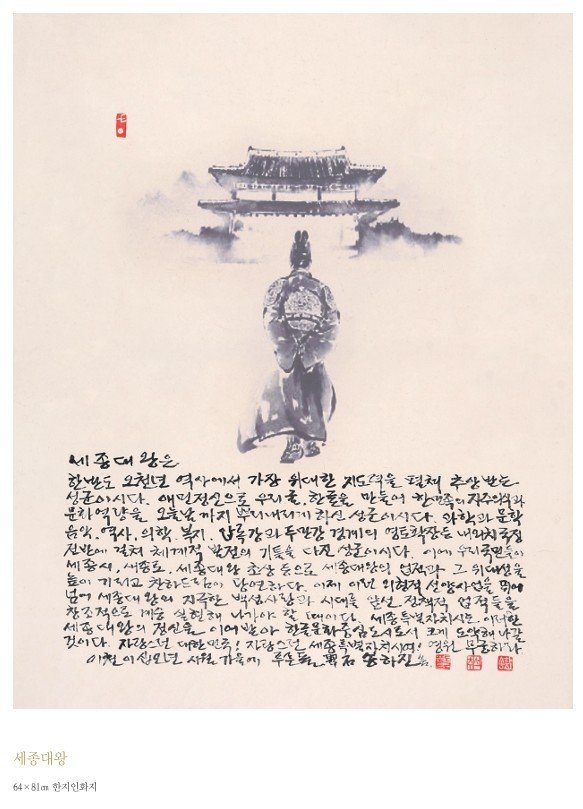 세종대왕은
한반도 오천년 역사에서 가장 위대한 지도력을 펼쳐 추앙받는
성군이시다. 애민정신으로 우리글, 한글을 만들어 한민족의 자주의식과
문화역량을 오늘날까지 뿌리내리게 하신 성군이시다. 과학과 문학
음악, 역사, 의학, 복지, 압록강과 두만강 경계의 영토확장등 내외치국정
전반에 걸쳐 체계적 발전의 기틀을 다진 성군이시다. 이에 우리국민들이
세종시, 세종로, 세종대왕 초상 등으로 세종대왕의 업적과 그 위대성을
높이 기리고 찬하드림이 당연하다. 이제 이런 외형적 선양사업을
넘어 세종대왕의 지극한 백성사랑과 시대를 앞선 정책적 업적들을
창조적으로 계승 실현해 나가야 할 때이다. 세종특별자치시는 이러한
세종대왕의 정신을 이어받아 한글문화중심도시로서 크게 도약해 나갈
것이다. 자랑스런 대한민국! 자랑스런 세종특별자치시여! 영원 무궁하라
이천이십오년 가을에 송하진
세종대왕
64×81㎝ 한지인화지